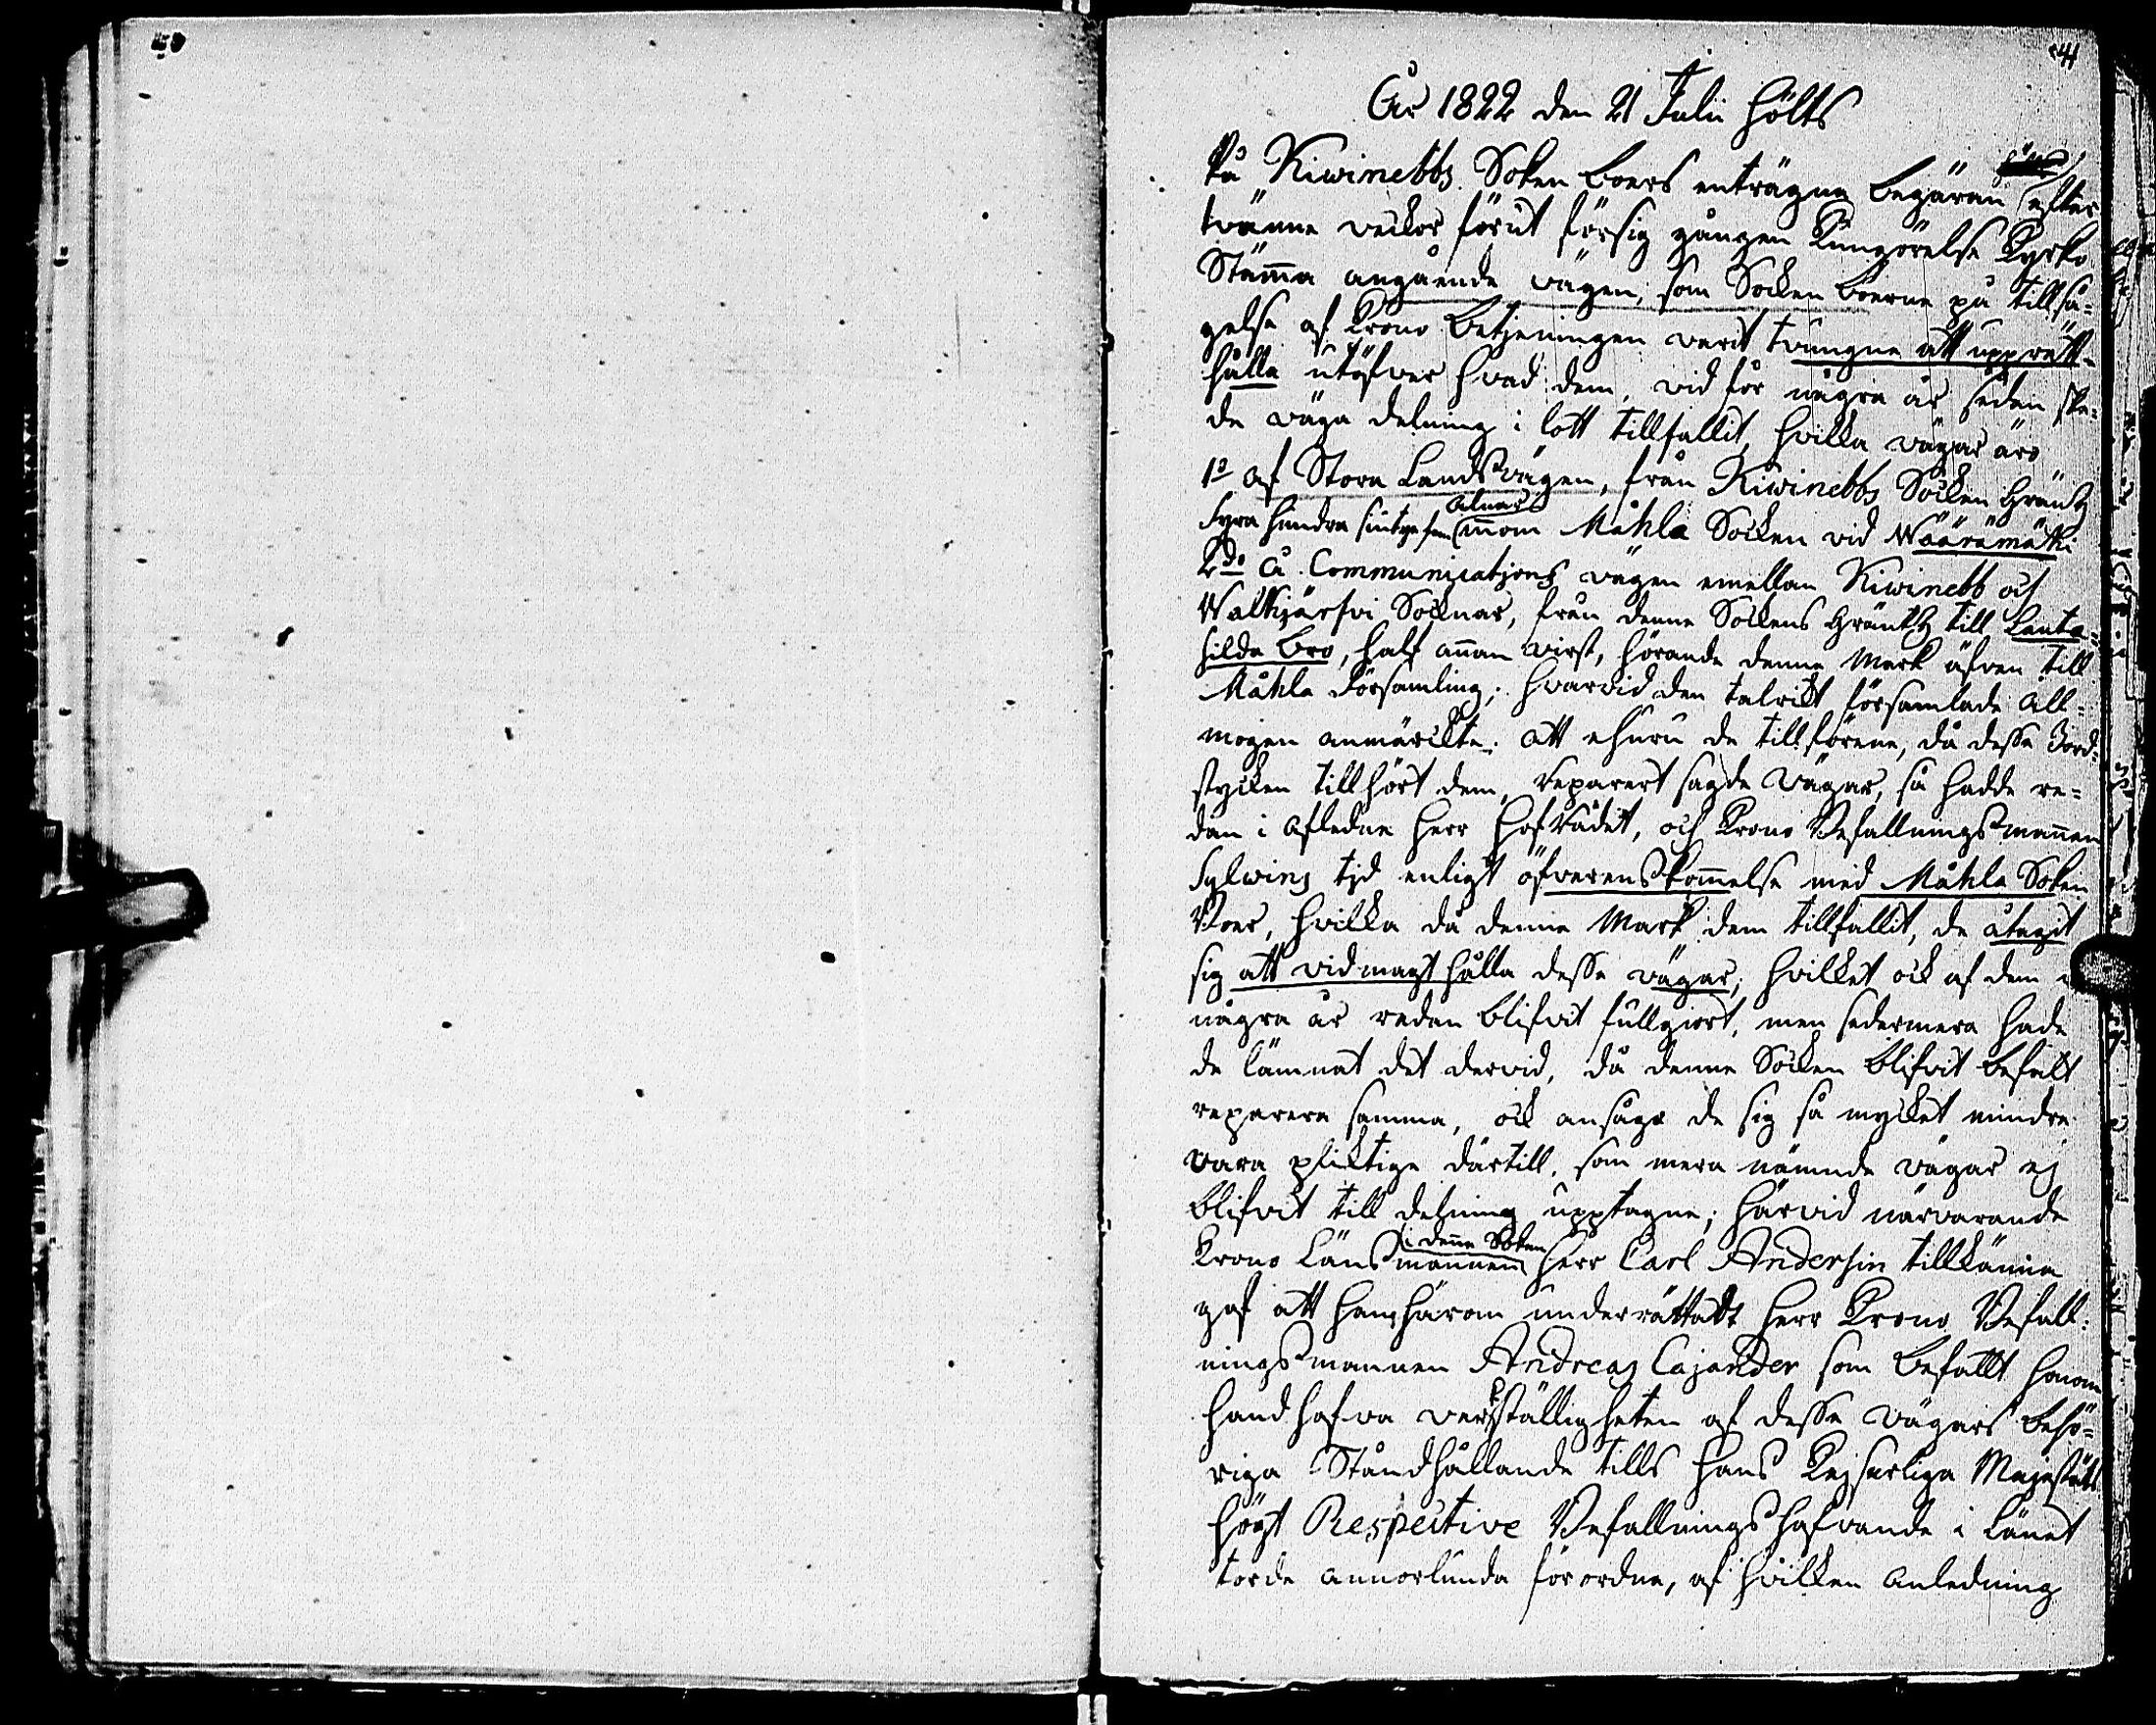 41
År 1822 den 21 Julii hölts
På Kiwinebbs Soken boers enträgna begäran efter
tvänne veckor förut försig gången Kungörelse Kyrko
Stämma angående vägen, som Socken boerne på tillsä-
gelse af Krono betjeningen varit tvungne att upprätt-
hålla utöfver hvad dem, vid för några år sedan ske-
de väga delning i lott tillfallit, hvilka vägar äro
1o af Stora Landsvägen, från Kiwinebbs Socken Gräntz
alnar
Fyra hundra sintye fem innom Måhla Socken vid Wääräinäki
2do å Communications vägen emellan Kiwinebb och
Walkjärfvi Socknar, från denne Sockens Gräntz till Lauta-
silda bro, half annan virst, hörande denne Mark äfven till
Måhla Församling; hvarvid den talrikt församlade all-
mogen anmärckte: att ehuru de tillförene, då desse Jord-
stycken tillhört dem, reparert sagde vägar, så hadde re-
dan i afledne herr HofRådet, och Krono Befallningsmannen
Sylwins tjd enligt öfverenskommelse med Måhla Soken
Boer, hvilka då denne Mark dem tillfallit, de åtagit
sig att vidmagt hålla desse vägar; hvilket ock af dem i
några år redan blifvit fullgiort, men sedermera hade
de lämnat det dervid, då denne Socken blifvit befalt
reparera samma, ock ansåge de sig så mycket mindre
vara pliktige därtill, som mera nämnde vägar ej
blifvit till delning upptagne; härvid närvarande
i denne Soken
Krono Länsmannen Herr Carl Andersin tillkänna
gaf att han härom underrättadt Herr Krono Befall-
ningsmannen Andreas Cajander som befallt honom
handhafva verkställigheten af desse vägars behö-
riga Ståndhållande tills Hans Kejserliga Majestäts
högt Respective Befallningshafvande i Länet
torde annorlunda förordna, af hvilken anledning